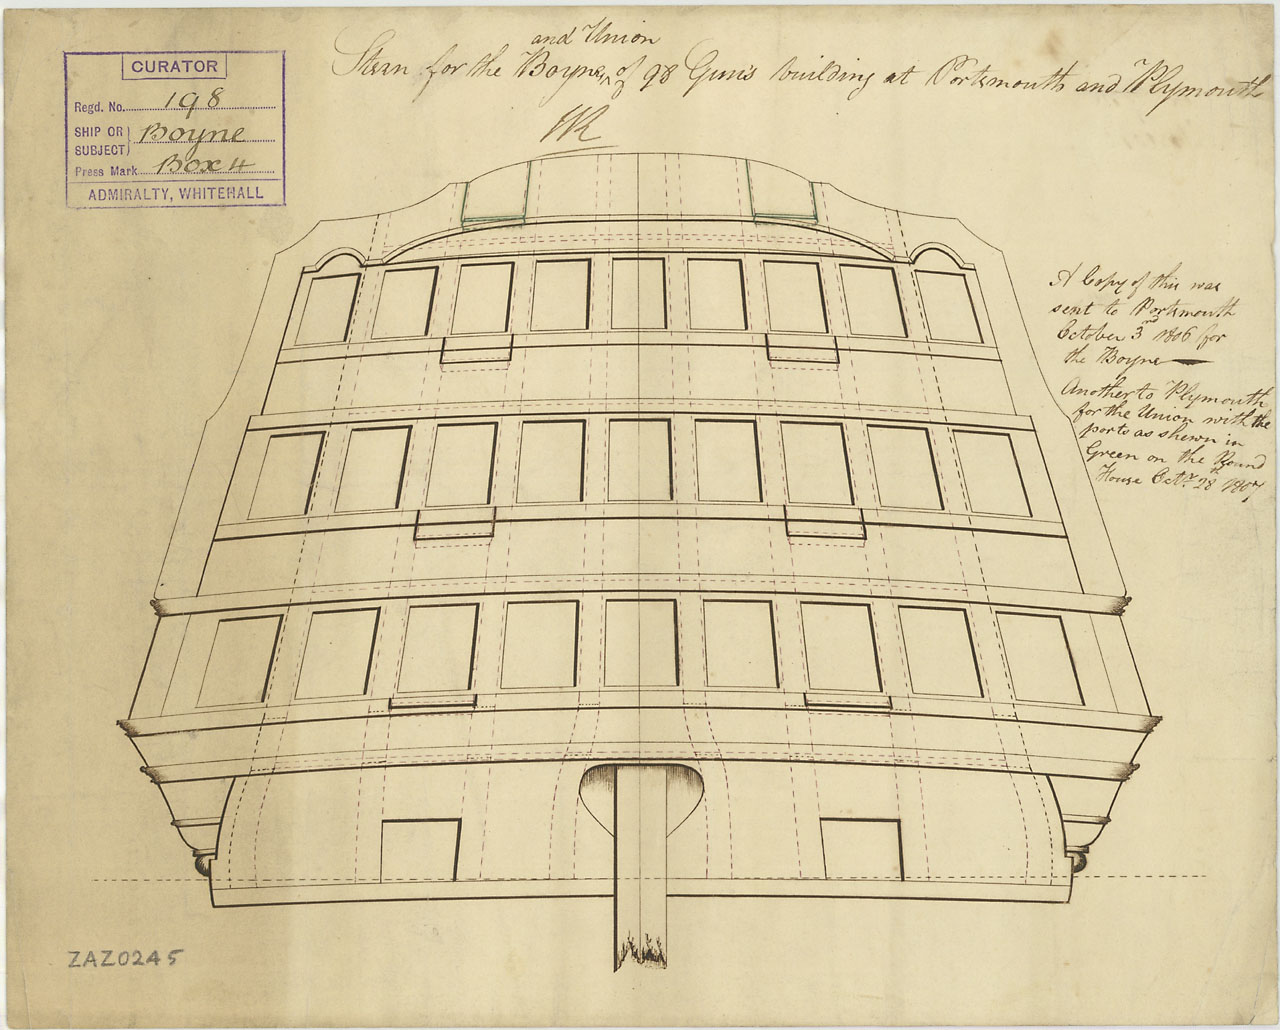 CURATOR
Regd. No. 198
SHIP OR SUBJECT} Boyne
Press Mark Box 4
ADMIRALTY, WHITEHALL
and Union
Stern for the Boyne ^ of 98 Guns building at Portsmouth and Plymouth
A Copy of this was
sent to Portsmouth
October 3rd 1806 for
the Boyne
Another to Plymouth
for the Union with the
ports as shewn in
Green on the Round
House Octr. 28th 1807
ZAZ0245